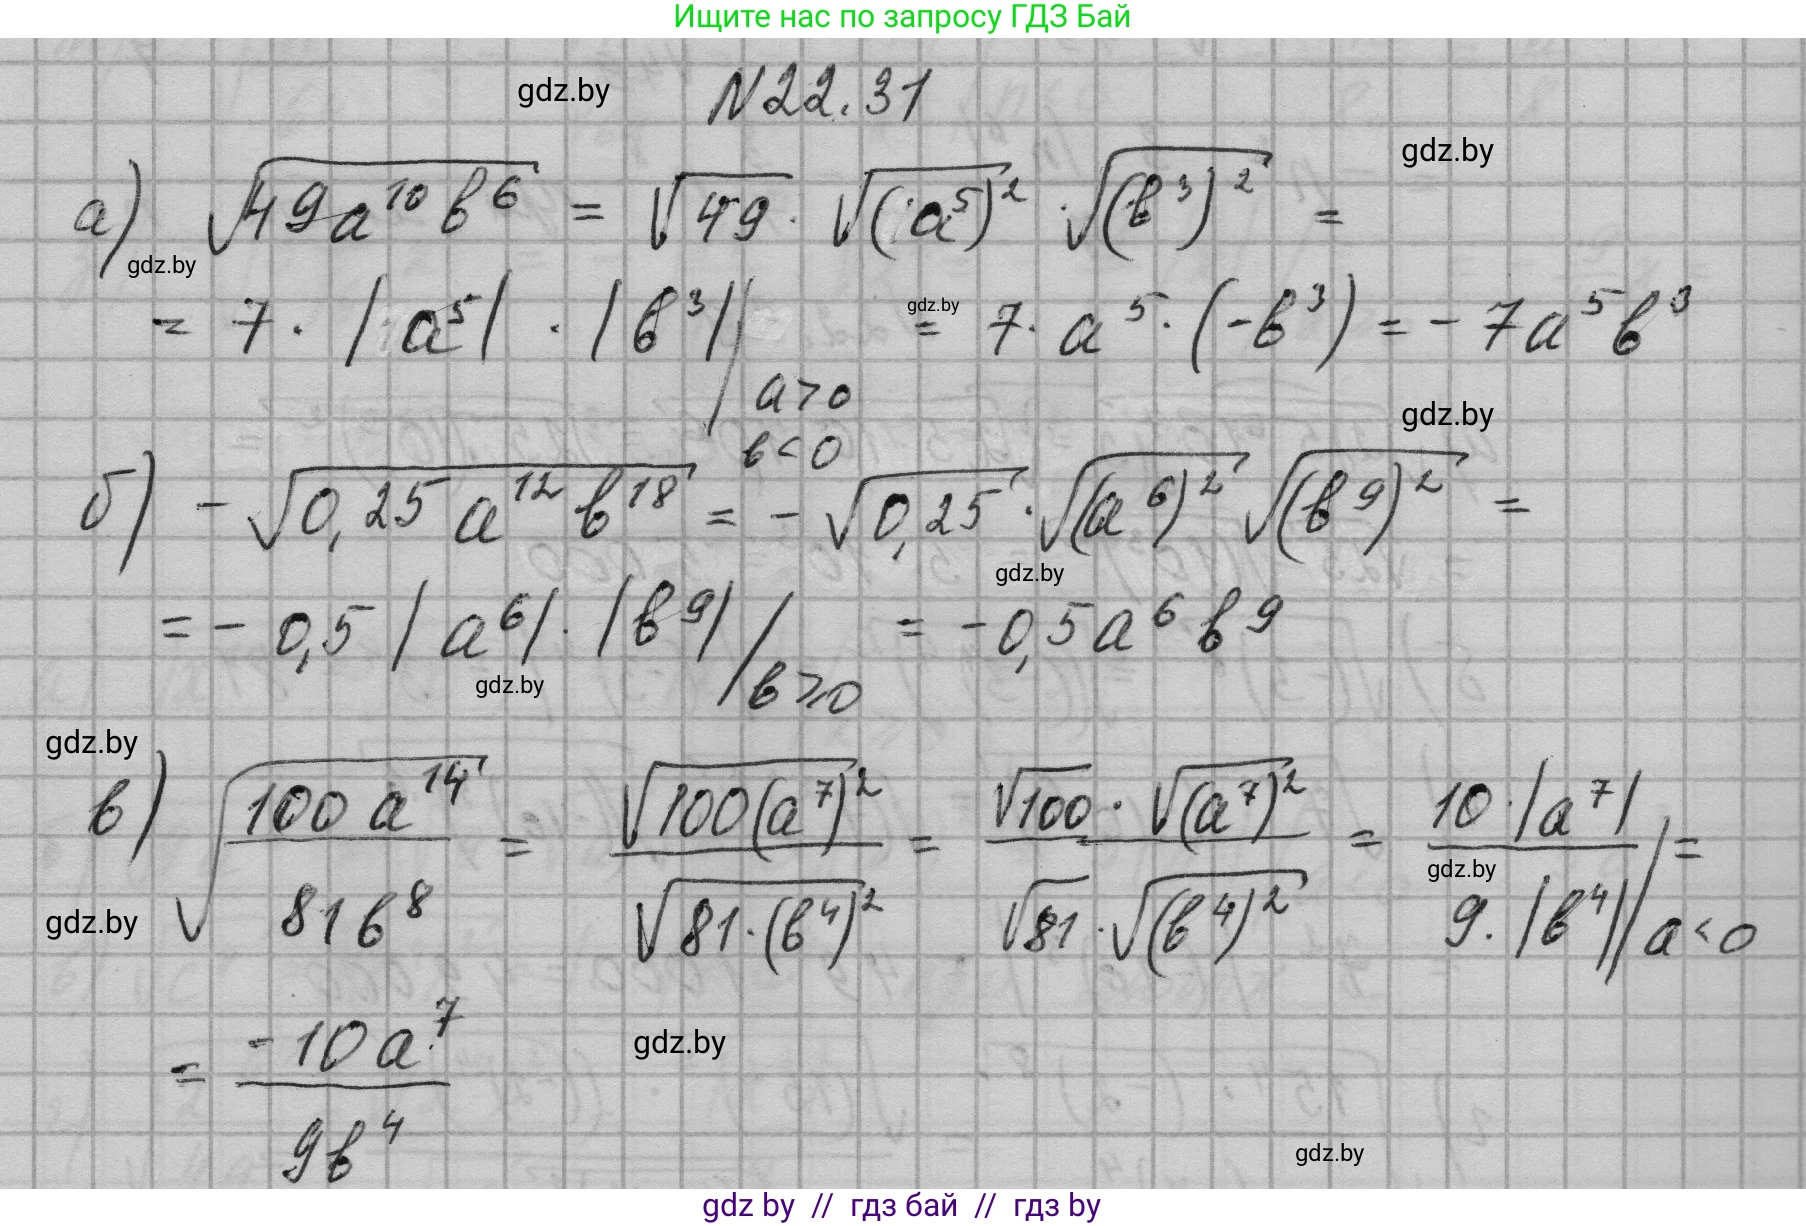 Ищите нас по запросу ГДЗ Бай
gdz.by
N22.31
gdz.by
а) √(49a¹⁰b⁶) = √49 · √((a⁵)²) · √((b³)²) =
gdz.by
= 7 · |a⁵| · |b³| / a>0 b<0 = 7 · a⁵ · (-b³) = -7a⁵b³
gdz.by
gdz.by
б) -√(0,25a¹²b¹⁸) = -√0,25 · √((a⁶)²) √((b⁹)²) =
gdz.by
= -0,5 |a⁶| · |b⁹| / b⩾0 = -0,5a⁶b⁹
gdz.by
gdz.by
в) √(100a¹⁴/81b⁸) = √(100(a⁷)²)/√(81·(b⁴)²) = √100 · √((a⁷)²)/√81 · √((b⁴)²) = 10·|a⁷|/9·|b⁴| / a<0 =
gdz.by
gdz.by
= -10a⁷/9b⁴
gdz.by
gdz.by
gdz by // гдз бай // гдз by